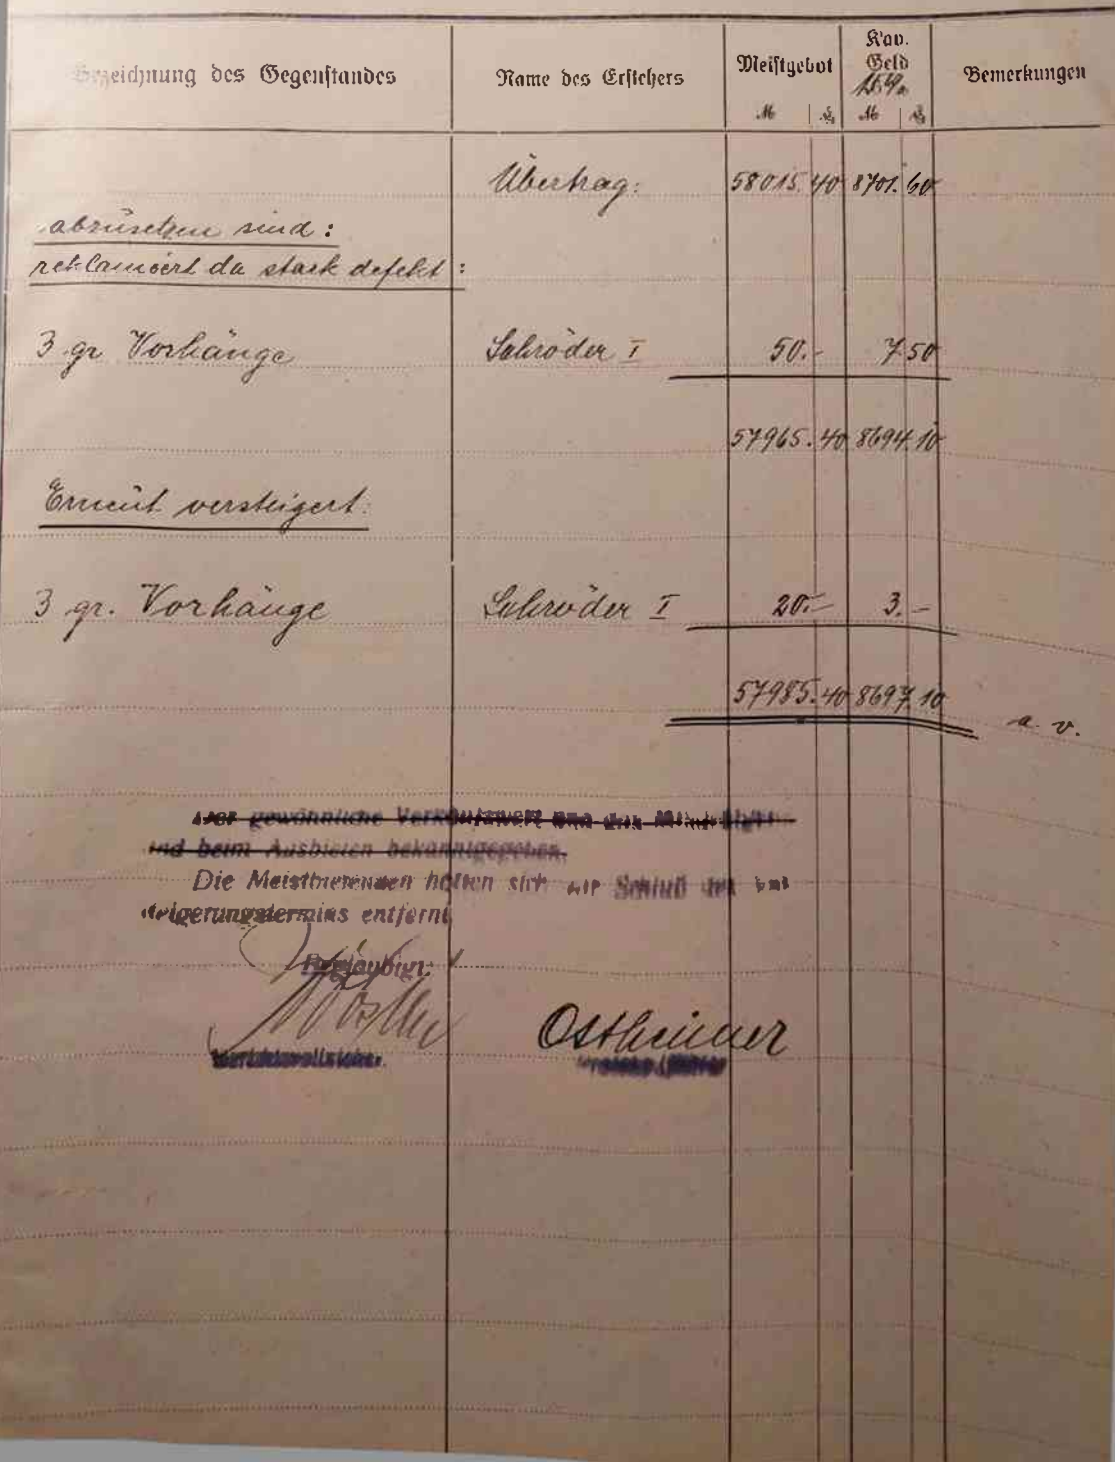 Bezeichnung des Gegenstandes Name des Erstehers Meistgebot Kav. Geld 15% Bemerkungen
M ₰ M ₰
Übertrag: 58015.40 8701.60
abzusetzen sind:
reklamiert da stark defekt:
3 gr Vorhänge Schröder I 50.- 7.50
57965.40 8694.10
Erneut versteigert:
3 gr. Vorhänge Schröder I 20.- 3.-
57985.40 8697.10
a. v.
Der gewöhnliche Verkaufswert und das
sind beim Ausbieten bekanntgegeben.
Die Meistbietenden hatten sich vor Schluß des
steigerungstermins entfernt
Beglaubigt:
Ostheimer
Gerichtsvollzieher.